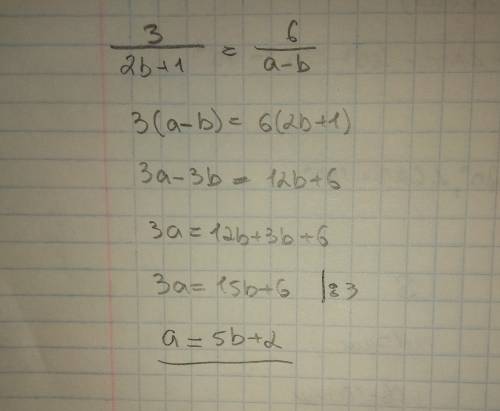 3/(2b+1) = 6/(a-b)
3(a-b) = 6(2b+1)
3a-3b = 12b+6
3a=12b+3b+6
3a=15b+6 |:3
a=5b+2